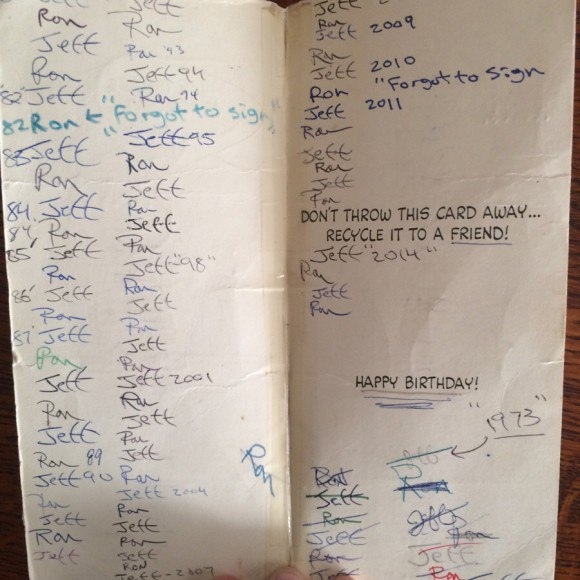 Ron
Jeff
Ron
'82 Jeff
82 Ron ← "Forgot to sign"
83 Jeff
Ron
84. Jeff
84' Ron
85' Jeff
Ron
86' Jeff
Ron
87. Jeff
Ron
Jeff
Ron
Jeff
Ron 89
Jeff 90
Ron
Jeff
Ron
Jeff
Ron
Ron '93
Jeff 94
Ron 94
Jeff 95
Ron
Jeff
Ron
Jeff
Ron
Jeff "98"
Ron
Jeff
Ron
Jeff
Ron
Jeff 2001
Ron
Jeff
Ron
Jeff
Ron
Jeff 2004
Ron
Jeff
Ron
Jeff
RON
Jeff - 2007
Ron
Jeff
Ron
Jeff 2009
Ron
Jeff 2010
Ron "Forgot to Sign
Jeff 2011
Ron
Jeff
Ron
Jeff
Ron
DON'T THROW THIS CARD AWAY...
RECYCLE IT TO A FRIEND!
Jeff "2014"
Ron
Jeff
Ron
HAPPY BIRTHDAY!
"1973"
Jeff
Ron
Jeff
Ron
Jeff
Ron
Ron
Jeff
Ron
Jeff
Ron
Jeff